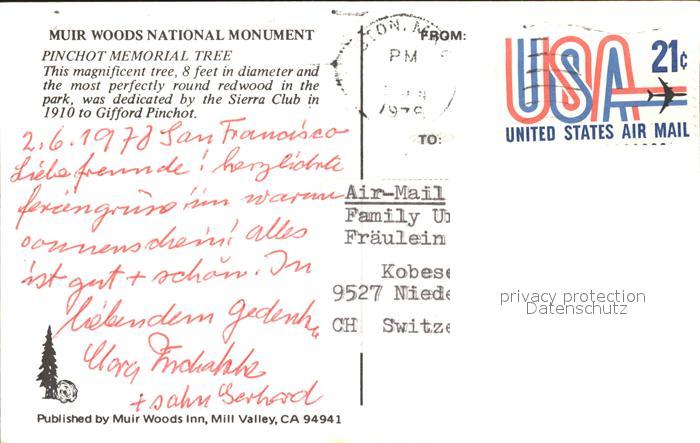 MUIR WOODS NATIONAL MONUMENT
PINCHOT MEMORIAL TREE
This magnificent tree, 8 feet in diameter and
the most perfectly round redwood in the
park, was dedicated by the Sierra Club in
1910 to Gifford Pinchot.
2.6.1978 San Francisco
Liebe freunde! herzlichste
feriengrüsse im warmen
sonnenschein! alles
ist gut + schön. In
liebendem Gedenk.
Clara
+ sohn Gerhard
Published by Muir Woods Inn, Mill Valley, CA 94941
PM
1978
FROM:
TO:
USA 21c
UNITED STATES AIR MAIL
Air-Mail
Family
Fräulein
Kobese
9527 Niede
CH Switze
privacy protection
Datenschutz